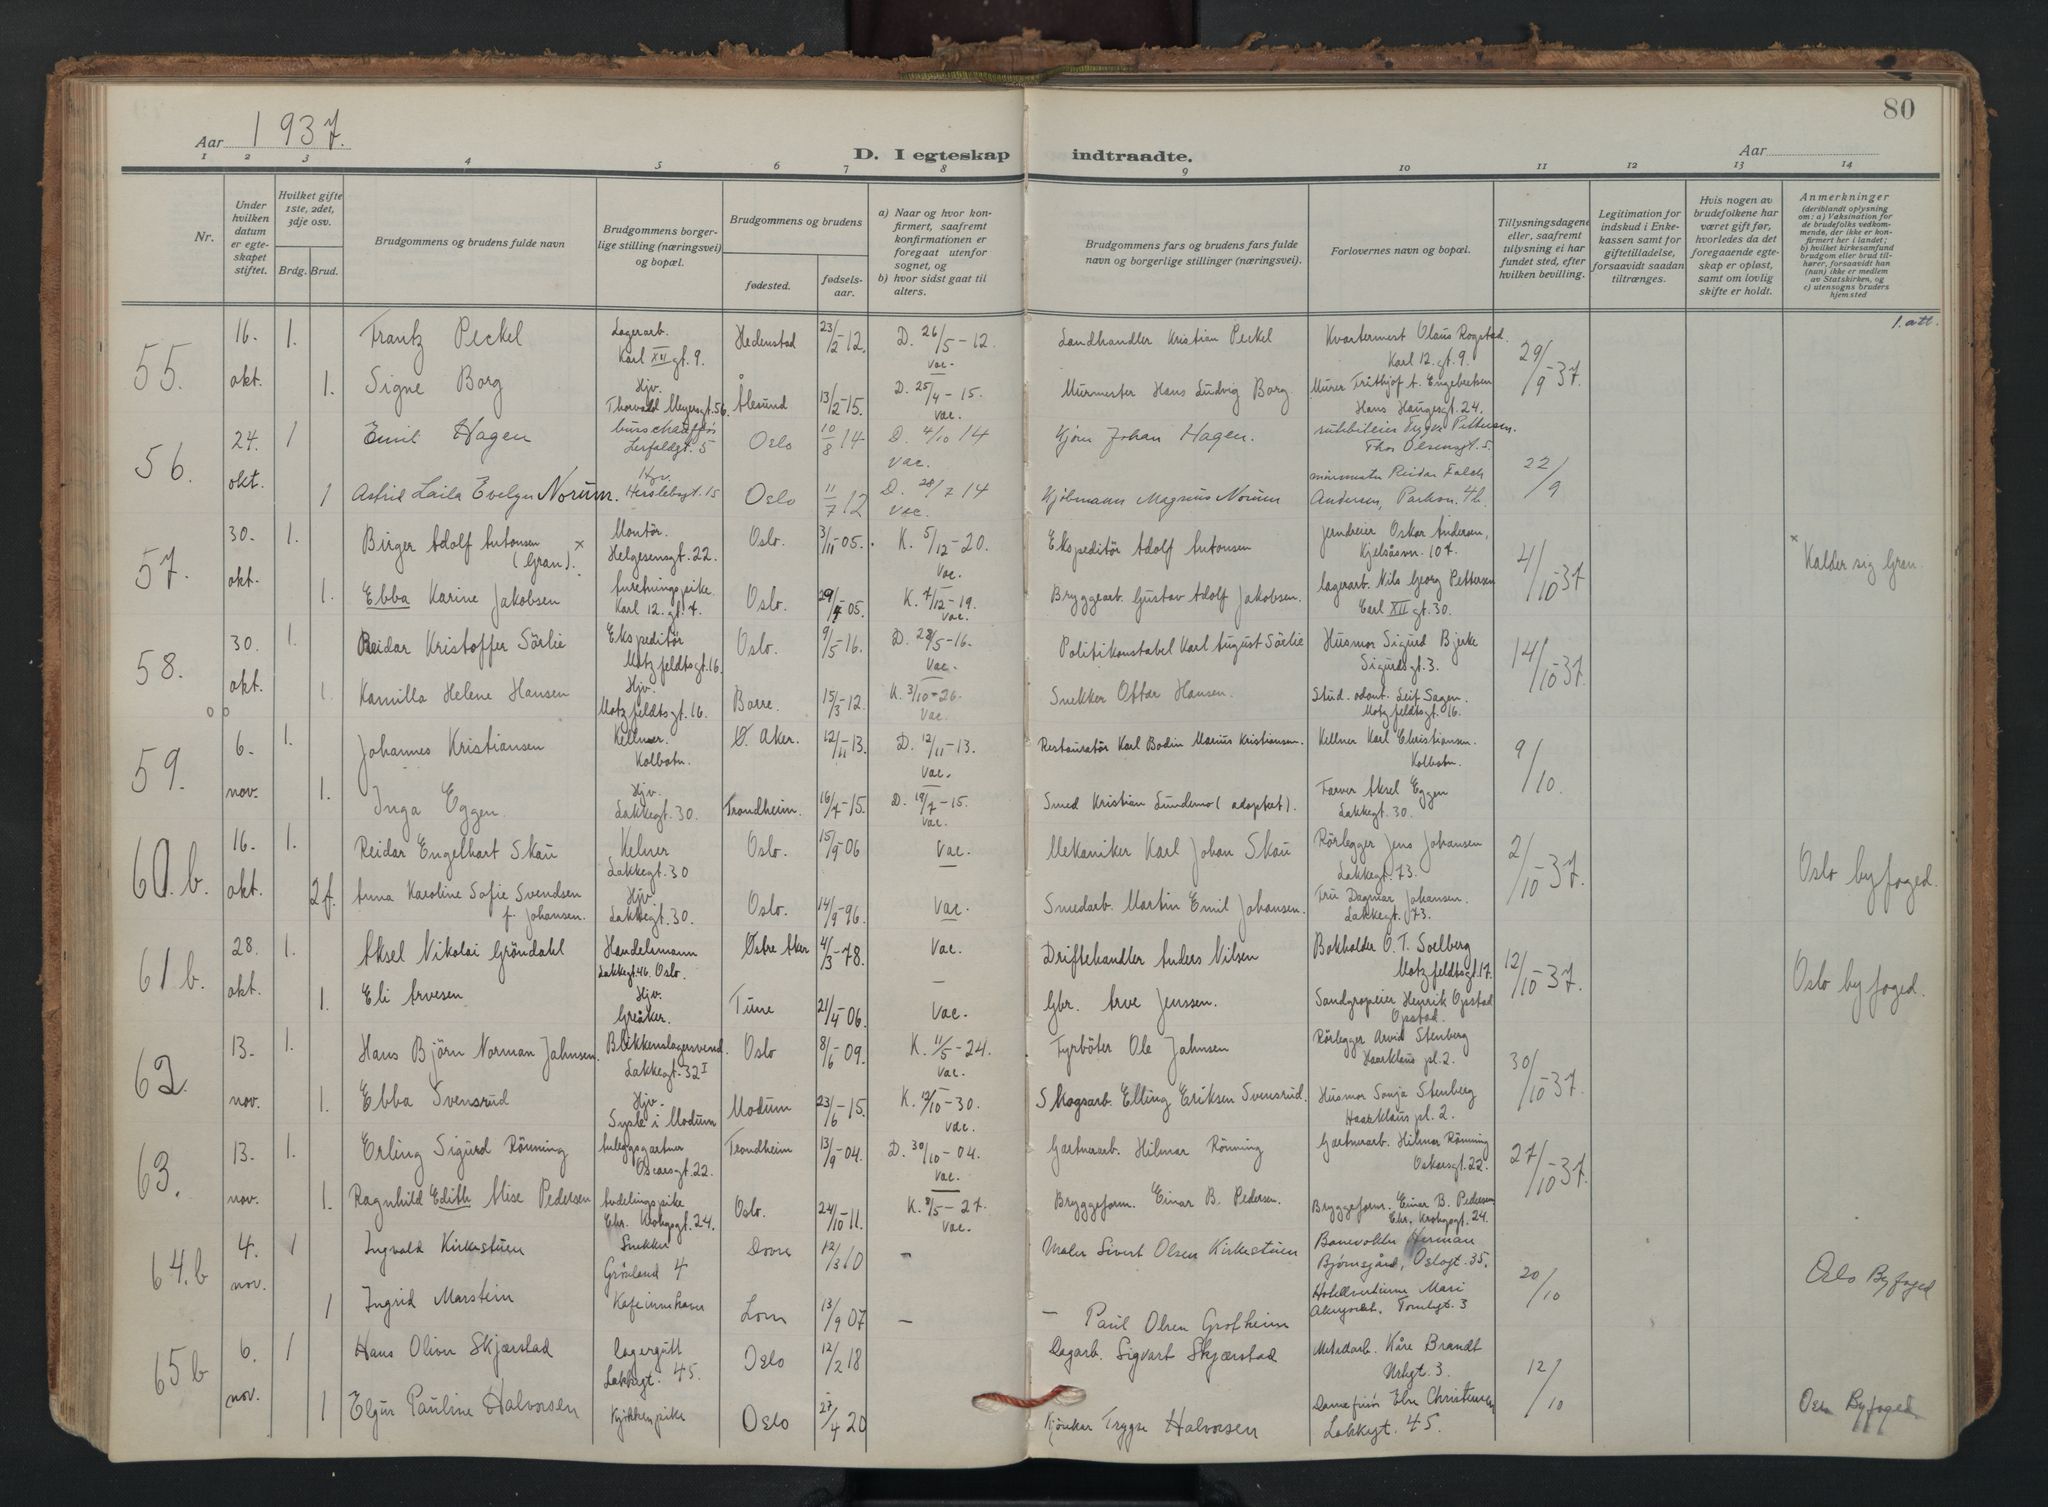 80
Aar 1937.
D. I egteskap indtraadte.
Aar
1 2 3 4 5 6 7 8 9 10 11 12 13 14
Nr.
Under hvilken datum er egteskapet stiftet.
Hvilket gifte 1ste, 2det, 3dje osv.
Brdg. Brud.
Brudgommens og brudens fulde navn
Brudgommens borgerlige stilling (næringsvei) og bopæl.
Brudgommens og brudens
fødested.
fødselsaar.
a) Naar og hvor konfirmert, saafremt konfirmationen er foregaat utenfor sognet, og
b) hvor sidst gaat til alters.
Brudgommens fars og brudens fars fulde navn og borgerlige stillinger (næringsvei).
Forlovernes navn og bopæl.
Tillysningsdagene eller, saafremt tillysning ei har fundet sted, efter hvilken bevilling.
Legitimation for indskud i Enkekassen samt for giftetilladelse, forsaavidt saadan tiltrænges.
Hvis nogen av brudefolkene har været gift før, hvorledes da det foregaaende egteskap er opløst, samt om lovlig skifte er holdt.
Anmerkninger (deriblandt oplysning om: a) Vaksination for de brudefolks vedkommende, der ikke er konfirmert her i landet; b) hvilket kirkesamfund brudgom eller brud tilhører, forsaavidt han (hun) ikke er medlem av Statskirken, og c) utensogns bruders hjemsted
55. 16. okt. 1. Frantz Peckel Lagerarb. Karl XII gt. 9. Hedenstad 23/2-12. D. 26/5-12. vac. Landhandler Kristian Peckel Kvartermest Olaus Rogstad. Karl 12. gt. 9. 29/9-37. 1. att.
1. Signe Borg Hjv. Thorvald Meyersgt. 56. Ålesund 13/2-15. D. 25/4-15. vac. Murmester Hans Ludvig Borg. Murer Frithjof A. Engebretsen Hans Haugesgt. 24.
56. 24. okt. 1 Emil Hagen Lerfaldgt. 5 Oslo 10/8 14 D. 4/10 14 vac. Johan Hagen. Pettersen. Thos Olsensgt. 5. 22/9
1 Astrid Laila Evelyn Norum. Hjv. Herslebsgt. 15 Oslo 11/7 12 D. 28/7 14 vac. Magnus Norum Reidar Falch Andersen,
57. 30. okt. 1. Birger Adolf Antonsen (Gran). × Montör. Helgesensgt. 22. Oslo. 3/11-05. K. 5/12-20. vac. Ekspeditör Adolf Antonsen Jerndreier Oskar Andersen, Kjelsåsvn. 107. 4/10-37 × Kalder sig Gran.
1. Ebba Karine Jakobsen Karl 12. gt. 7. Oslo. 29/7-05. K. 7/12-19. vac. Bryggearb. Gustav Adolf Jakobsen. Lagerarb. Nils Georg Pettersen Carl XII gt. 30.
58. 30. okt. 1. Reidar Kristoffer Sörlie Ekspeditör Motzfeldtsgt. 16. Oslo. 9/5-16. D. 28/5-16. vac. Politikonstabel Karl August Sörlie Husmor Sigurd Bjerke Sigurdsgt. 3. 14/10-37.
1. Kamilla Helene Hansen Hjv. Motzfeldtsgt. 16. Borre. 15/3-12. K. 3/10-26. vac. Snekker Ottar Hansen. Stud. odont. Leif Sagen. Motzfeldtsgt. 16.
59. 6. nov. 1. Johannes Kristiansen Kellner. Kolbotn. Ø. Aker. 12/11-13. D. 12/11-13. vac. Restauratör Karl Bodin Marius Kristiansen. Kellner Karl Christiansen. Kolbotn. 9/10.
1. Inga Eggen. Hjv. Lakkegt. 30. Trondheim. 16/7-15. D. 19/7-15. vac. Smed Kristian Lundemo (adoptert). Farver Aksel Eggen Lakkegt. 30.
60.b. 16. okt. 1. Reidar Engelhart Skau Kelner Lakkegt. 30 Oslo. 15/9-06 vac. Mekaniker Karl Johan Skau Rörlegger Jens Johansen Lakkegt. 73. 2/10-37. Oslo byfoged.
2 f. Anna Karoline Sofie Svendsen f. Johansen. Hjv. Lakkegt. 30. Oslo. 14/9-96. vac. Smedarb. Martin Emil Johansen. Fru Dagmar Johansen. Lakkegt. 73.
61 b. 28. okt. 1. Aksel Nikolai Gröndahl Handelsmann Lakkegt. 46. Oslo. Østre Aker 4/3-78. vac. Driftehandler Anders Nilsen Bokholder O. T. Soelberg Motzfeldtsgt. 17. 12/10-37. Oslo byfoged.
1. Eli Arvesen Hjv. Greåker. Tune 21/4-06. vac. Gbr. Arve Jenssen. Henrik Opstad Opstad.
62. 13. nov. 1. Hans Björn Norman Jahnsen. Blikkenslagersvend. Lakkegt. 32 I Oslo 8/6-09. K. 11/5-24. vac. Fyrböter Ole Jahnsen Rörlegger Arvid Stenberg Haarklaus pl. 2. 30/10-37.
1. Ebba Svensrud Hjv. Sysle i Modum Modum 23/6-15. K. 12/10-30. vac. Skogsarb. Elling Eriksen Svensrud. Husmor Sonja Stenberg Haarklaus pl. 2.
63. 13. nov. 1. Erling Sigurd Rönning Anleggsgartner Oscarsgt. 22. Trondheim 13/9-04. D. 30/10-04. vac. Gartnerarb. Hilmar Rönning Gartnerarb. Hilmar Rönning Oskarsgt. 22. 27/10-37.
1. Ragnhild Edith Alise Pedersen Chr. Krohgsgt. 24. Oslo. 24/10-11. K. 8/5-27. vac. Bryggeform. Einar B. Pedersen. Bryggeform. Einar B. Pedersen Chr. Krohgsgt. 24.
64.b 4. nov. 1 Ingvald Kirkestuen Snekker Grönland 4 Dovre 12/3 10 - Maler Sivert Olsen Kirkestuen Banevokter Herman Oslogt. 35. 20/10 Oslo Byfoged
1 Ingrid Marstein Kafeinnehaver Lom 13/9 07 - Paul Olsen Grofheim Mari Tomtegt. 3
65 b 6. nov. 1 Hans Oliver Skjærstad Lagergutt Lakkegt. 45. Oslo 12/2 18 Dagarb. Sigvart Skjærstad Metalarb. Kåre Brandt Urtegt. 3. 12/10 Oslo Byfoged
1 Pauline Halvorsen Kjökkenpike Oslo 27/4 20 Trygve Halvorsen Else Christensen Lakkegt. 45.